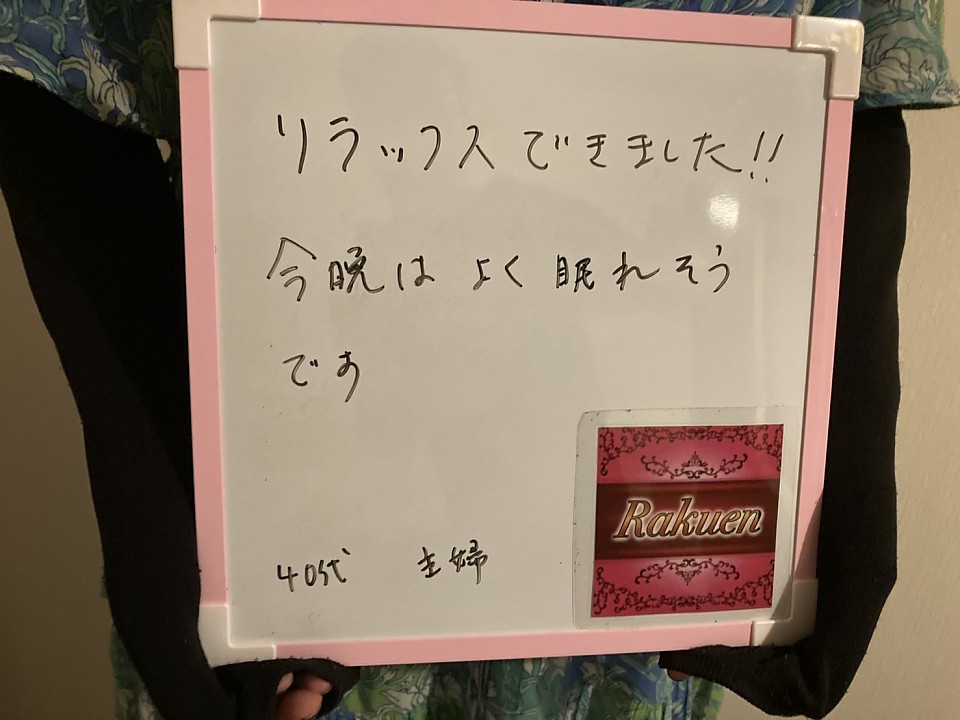 リラックスできました!!
今晩はよく眠れそう
です
40代 主婦
Rakuen